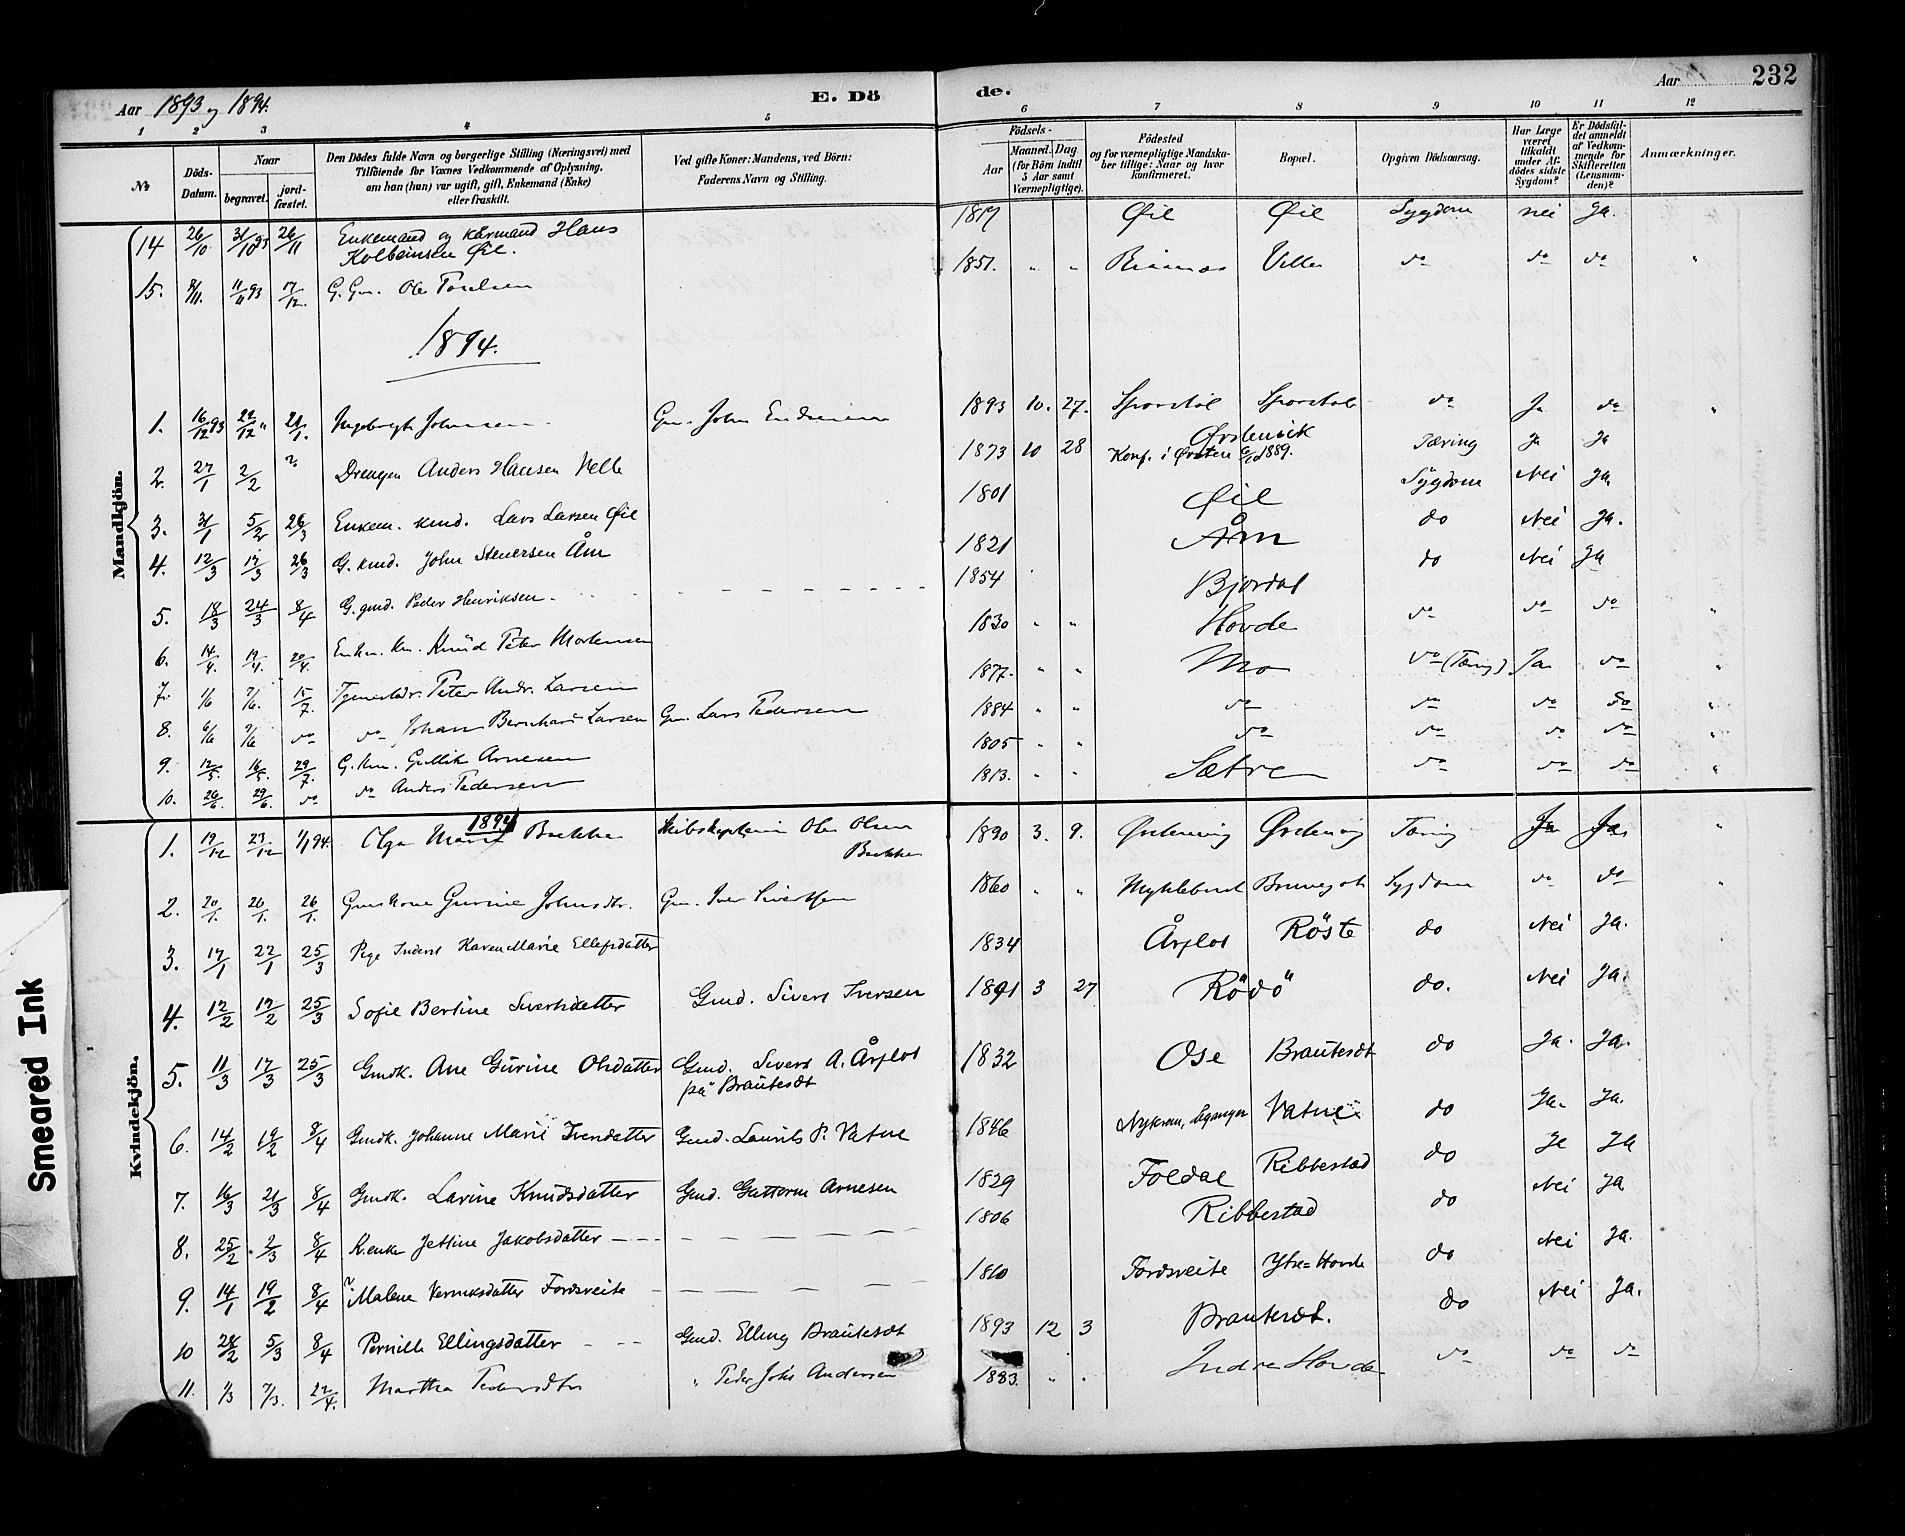 Aar 1893 og 1894.
E. Dö
de.
Aar
232
1 2 3 4 5 6 7 8 9 10 11 12
No
Döds-Datum.
Naar
begravet.
jord-fæstet.
Den Dödes fulde Navn og borgerlige Stilling (Næringsvei) med
Tilföiende for Voxnes Vedkommende af Oplysning,
om han (hun) var ugift, gift, Enkemand (Enke)
eller fraskilt.
Ved gifte Koner: Mandens, ved Börn:
Faderens Navn og Stilling.
Födsels-
Aar
Maaned. Dag
(for Börn indtil
5 Aar samt
Værnepligtige).
Födested
og for værnepligtige Mandska-
ber tillige: Naar og hvor
konfirmeret.
Bopæl.
Opgiven Dödsaarsag.
Har Læge
været
tilkaldt
under Af-
dödes sidste
Sygdom?
Er Dödsfal-
det anmeldt
af Vedkom-
mende for
Skifteretten
(Lensman-
den)?
Anmærkninger.
Mandkjön.
14 26/10 31/10 93 26/11 Enkemand og kårmand Hans Kolbeinsen Øie. 1817 Øie Øie Sygdom nei ja.
15. 8/11. 11/11 93 17/12. G. Gm. Ole 1851. " " Velle do do do "
1894.
1. 16/12 93 22/12 " 21/1. Ingebrigt Johnsen. Gm. John Endresen 1893 10. 27. Sporstøl Sporstøl do Ja do "
2. 27/1 2/2 Drengen Anders Hansen Velle 1873 10 28 Ørstenvik Konf. i Ørsten 6/10 1889. Tæring Ja Ja
3. 31/1 5/2 26/3 Enkem. kmd. Lars Larsen Øie 1801 Øie Sygdom Nei Ja.
4. 12/3 17/3 26/3 G. kmd. John Steuersen Åm 1821 Åm do Nei Ja.
5. 18/3 24/3 8/4 G. gmd. Peder Henriksen. 1854 Bjordal do Nei Ja
6. 14/4 19/4. 20/4. Enkm. Km. Knud Peter Mortensen 1830 " " Hovde do do do "
7. 1/6 7/6. 15/7. Tjenestedr. Peter Andr. Larsen 1877. " " Mo do (Tæring) Ja do "
8. 6/6 9/6 do do Johan Bernhard Larsen Gm. Lars Pedersen 1884 " " do do do do "
9. 12/5. 16/5. 29/7. G. Km. Gullik Arnesen 1805 " " do do do do "
10. 26/6. 29/6. do do Anders Pedersen 1813. " " Sætre do do do "
Kvindekjön.
1894
1. 19/12 23/12 1/1 94. Olga Marie Bakken Skibskaptein Ole Olsen Bakken 1890 3. 9. Ørstenvig Ørstenvig Tæring Ja Ja. "
2. 20/1. 26/1. 26/1. Gmskone Gurine Johnsdtr. Gm. Iver Sivertsen 1860 " " Myklebust Sygdom do do "
3. 17/1 22/1 25/3 Pige Inderst Karen Marie Ellefsdatter 1834 Årflot Röste do Nei Ja.
4. 12/2 17/2 25/3 Sofie Bertine Sivertsdatter Gmd. Sivert Iversen 1891 3 27 Rödö do. Nei Ja.
5. 11/3 17/3 25/3 Gmdk. Ane Gurine Olsdatter Gmd. Sivert A. Årflot på Brautesæt 1832 Ose Brautesæt do Ja. Ja.
6. 14/2 19/2 8/4 Gmdk. Johanne Marie Iversdatter Gmd. Laurits P. Vatne 1846 Vatne do Ja. Ja.
7. 16/3 21/3 8/4 Gmdk. Larine Knudsdatter Gmd. Guttorm Arnesen 1829 Foldal Ribbestad do Ja Ja
8. 25/2 2/3 8/4 K.enke Jettine Jakobsdatter 1806 Ribbestad do Nei Ja
9. 14/1 19/2 8/4 Malene Fordsveite 1810 Fordsveite Ytre=Hovde do Nei Ja.
10 28/2 5/3 8/4 Pernille Ellingsdatter Gmd. Elling Brautesæt 1893 12 3 Brautesæt. do Nei Ja.
11. 1/3 7/3. 22/4. Martha Pedersdtr " Peder Johs Andersen 1883. " " Indre Hovde do do do
Smeared Ink